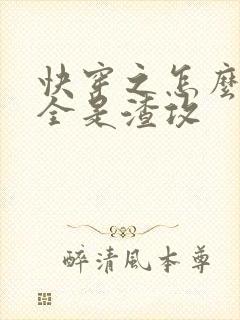 快穿之怎麼
全是渣攻
醉清風本尊